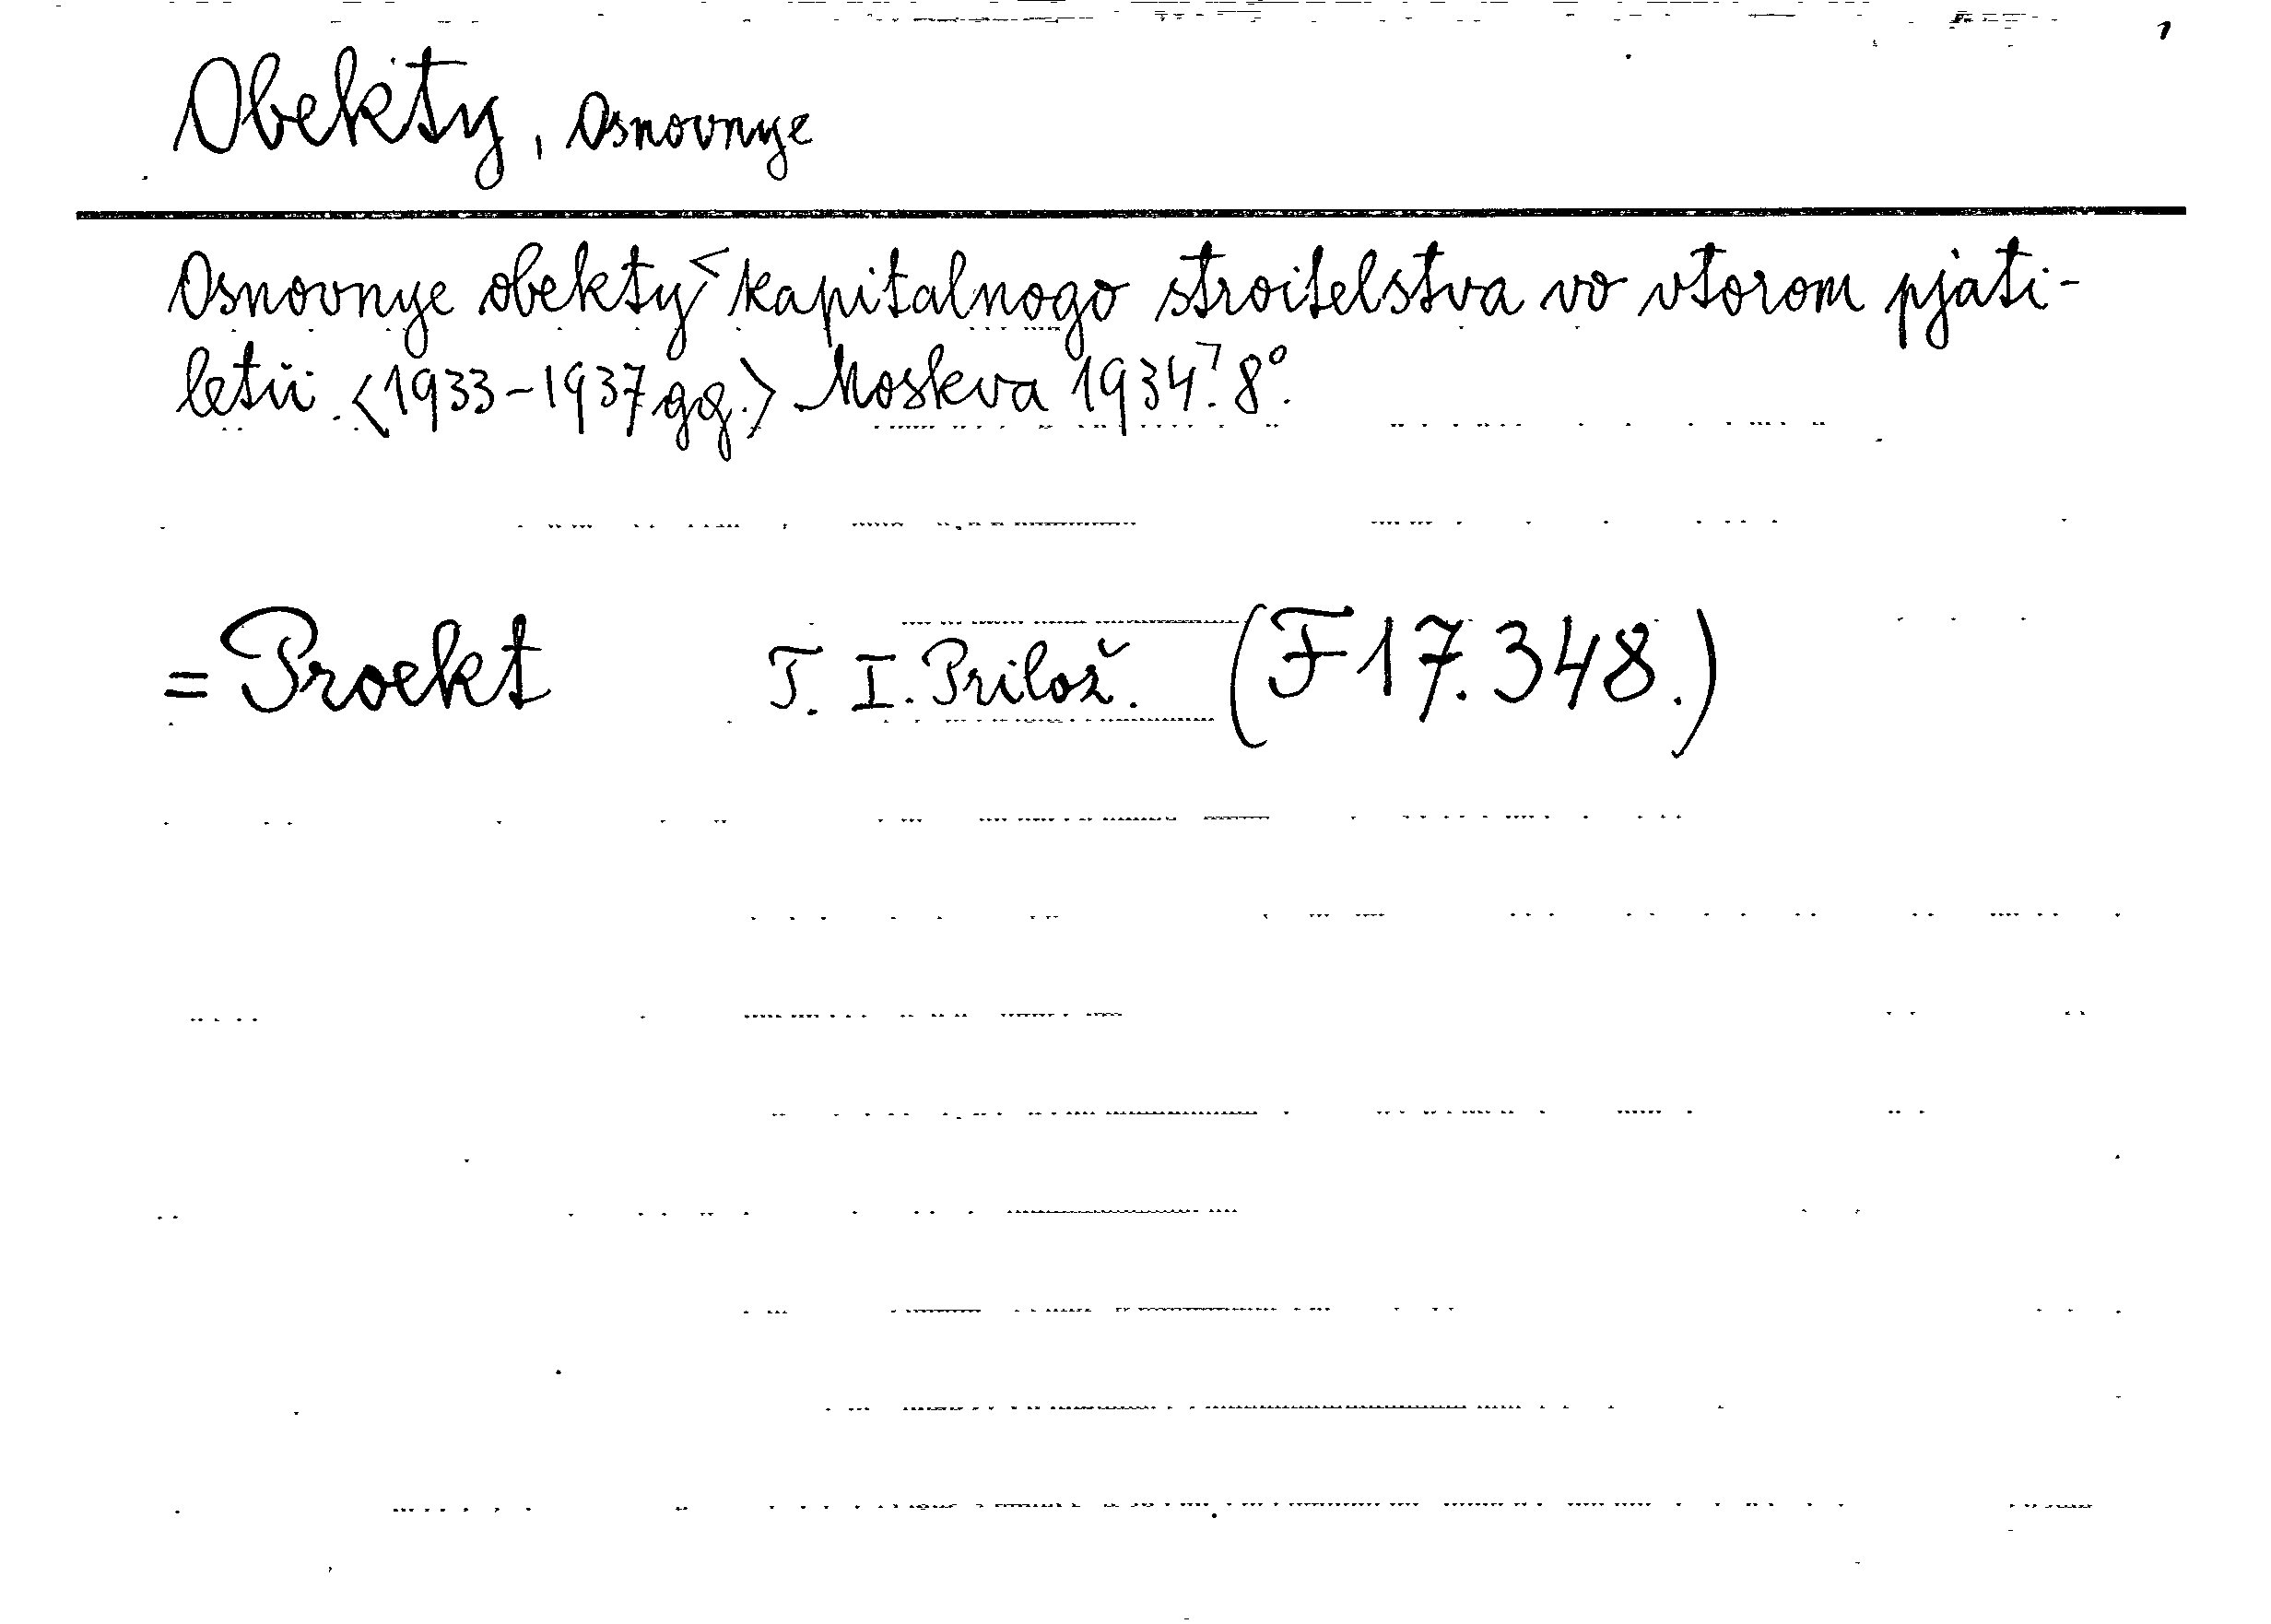 1
Obekty, Osnovnye
Osnovnye obekty < kapitalnogo stroitelstva vo vtorom pjati-
letii. <1933-1937 gg.> Moskva 1934. ⁊ 8°.
= Proekt T. I. Prilož. (F 17.348.)